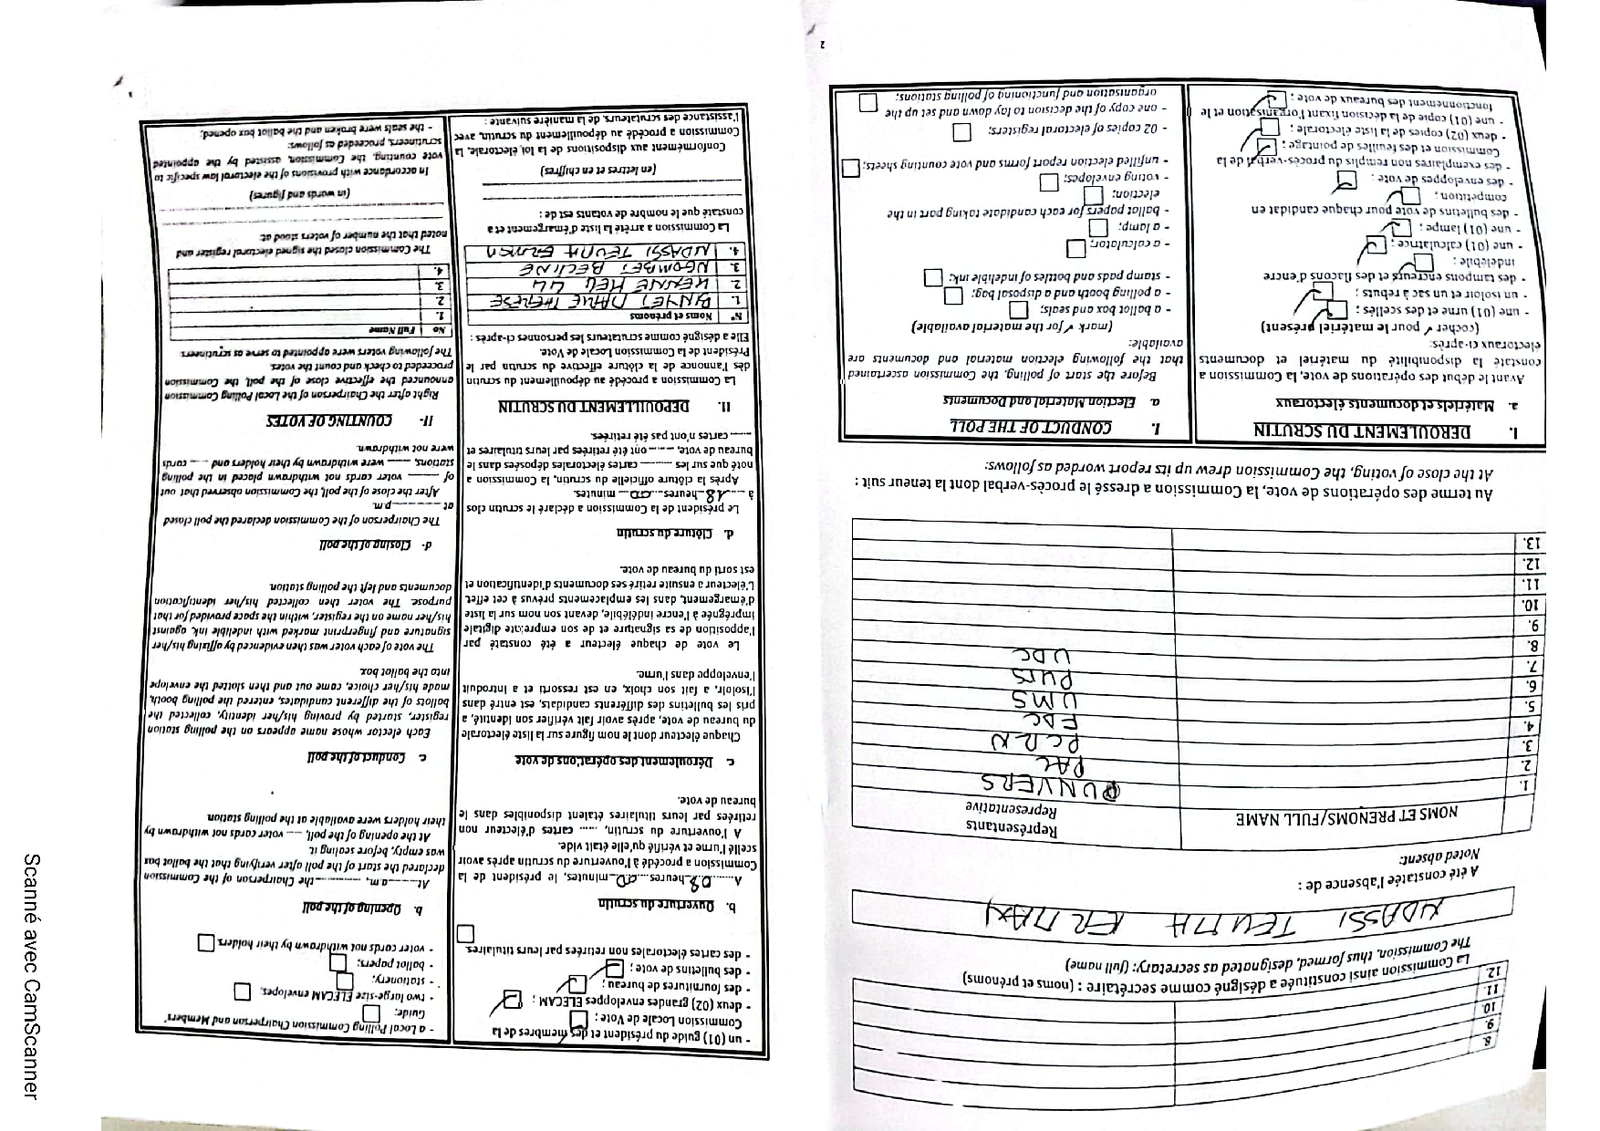 8.
9.
10.
11.
12.
La Commission ainsi constituée a désigné comme secrétaire : (noms et prénoms)
The Commission, thus formed, designated as secretary: (full name)
NDASSI TEUMA
A été constatée l'absence de :
Noted absent:
NOMS ET PRENOMS/FULL NAME
Représentants
Representative
1. PUNIVERS
2. PAL
3. PCRN
4. FDC
5. UMS
6. PURS
7. UDC
8.
9.
10.
11.
12.
13.
Au terme des opérations de vote, la Commission a dressé le procès-verbal dont la teneur suit :
At the close of voting, the Commission drew up its report worded as follows:
I. DEROULEMENT DU SCRUTIN
a. Matériels et documents électoraux
Avant le début des opérations de vote, la Commission a
constaté la disponibilité du matériel et documents
électoraux ci-après:
(cocher ✓ pour le matériel présent)
- une (01) urne et des scellés ;
- un isoloir et un sac à rebuts ;
- des tampons encreurs et des flacons d'encre
indélébile ;
- une (01) calculatrice ;
- une (01) lampe ;
- des bulletins de vote pour chaque candidat en
compétition ;
- des enveloppes de vote ;
- des exemplaires non remplis du procès-verbal de la
Commission et des feuilles de pointage ;
- deux (02) copies de la liste électorale ;
- une (01) copie de la décision fixant l'organisation et le
fonctionnement des bureaux de vote ;
I. CONDUCT OF THE POLL
a. Election Material and Documents
Before the start of polling, the Commission ascertained
that the following election material and documents are
available:
(mark ✓ for the material available)
- a ballot box and seals;
- a polling booth and a disposal bag;
- stamp pads and bottles of indelible ink;
- a calculator;
- a lamp;
- ballot papers for each candidate taking part in the
election;
- voting envelopes;
- unfilled election report forms and vote counting sheets;
- 02 copies of electoral registers;
- one copy of the decision to lay down and set up the
organisation and functioning of polling stations;
2
- un (01) guide du président et des membres de la
Commission Locale de Vote ;
- deux (02) grandes enveloppes ELECAM ;
- des fournitures de bureau ;
- des bulletins de vote ;
- des cartes électorales non retirées par leurs titulaires.
b. Ouverture du scrutin
A 08 heures 00 minutes, le président de la
Commission a procédé à l'ouverture du scrutin après avoir
scellé l'urne et vérifié qu'elle était vide.
A l'ouverture du scrutin, ...... cartes d'électeur non
retirées par leurs titulaires étaient disponibles dans le
bureau de vote.
c. Déroulement des opérations de vote
Chaque électeur dont le nom figure sur la liste électorale
du bureau de vote, après avoir fait vérifier son identité, a
pris les bulletins des différents candidats, est entré dans
l'isoloir, a fait son choix, en est ressorti et a introduit
l'enveloppe dans l'urne.
Le vote de chaque électeur a été constaté par
l'apposition de sa signature et de son empreinte digitale
imprégnée à l'encre indélébile, devant son nom sur la liste
d'émargement, dans les emplacements prévus à cet effet.
L'électeur a ensuite retiré ses documents d'identification et
est sorti du bureau de vote.
d. Clôture du scrutin
Le président de la Commission a déclaré le scrutin clos
à 18 heures 00 minutes.
Après la clôture officielle du scrutin, la Commission a
noté que sur les ........ cartes électorales déposées dans le
bureau de vote, ...... ont été retirées par leurs titulaires et
...... cartes n'ont pas été retirées.
II. DEPOUILLEMENT DU SCRUTIN
La Commission a procédé au dépouillement du scrutin
dès l'annonce de la clôture effective du scrutin par le
Président de la Commission Locale de Vote.
Elle a désigné comme scrutateurs les personnes ci-après :
N° Noms et prénoms
1. MARIE THERESE
2. KENNE
3. NGOMBET BECLINE
4. NDASSI TEUMA
La Commission a arrêté la liste d'émargement et a
constaté que le nombre de votants est de :
(en lettres et en chiffres)
Conformément aux dispositions de la loi électorale, la
Commission a procédé au dépouillement du scrutin, avec
l'assistance des scrutateurs, de la manière suivante :
- a Local Polling Commission Chairperson and Members'
Guide;
- two large-size ELECAM envelopes;
- stationery;
- ballot papers;
- voter cards not withdrawn by their holders
b. Opening of the poll
At ........ a.m, ............ the Chairperson of the Commission
declared the start of the poll after verifying that the ballot box
was empty, before sealing it.
At the opening of the poll, ...... voter cards not withdrawn by
their holders were available at the polling station.
c. Conduct of the poll
Each elector whose name appears on the polling station
register, started by proving his/her identity, collected the
ballots of the different candidates, entered the polling booth,
made his/her choice, came out and then slotted the envelope
into the ballot box.
The vote of each voter was then evidenced by affixing his/her
signature and fingerprint marked with indelible ink, against
his/her name on the register, within the space provided for that
purpose. The voter then collected his/her identification
documents and left the polling station.
d- Closing of the poll
The Chairperson of the Commission declared the poll closed
at ............ p.m.
After the close of the poll, the Commission observed that out
of ........ voter cards not withdrawn placed in the polling
stations, ...... were withdrawn by their holders and ...... cards
were not withdrawn.
II- COUNTING OF VOTES
Right after the Chairperson of the Local Polling Commission
announced the effective close of the poll, the Commission
proceeded to check and count the votes.
The following voters were appointed to serve as scrutineers.
No Full Name
1.
2.
3.
4.
The Commission closed the signed electoral register and
noted that the number of voters stood at:
(in words and figures)
In accordance with provisions of the electoral law specific to
vote counting, the Commission, assisted by the appointed
scrutineers, proceeded as follows:
- the seals were broken and the ballot box opened;
Scanné avec CamScanner